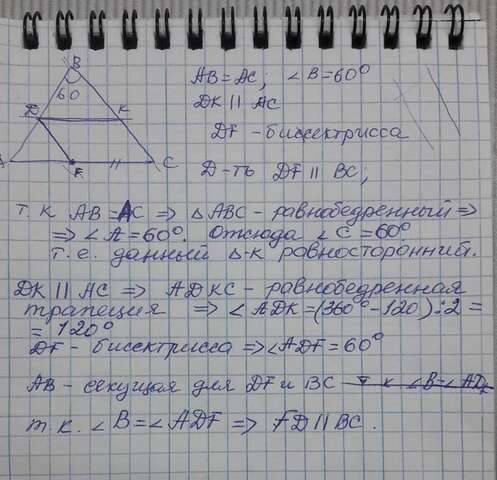 A
D
B
60
F
K
C
AB = AC; ∠B = 60°
DK || AC
DF - биссектриса
D-ть DF || BC;
т.к AB = AC => △ABC - равнобедренный =>
=> ∠A = 60°. Отсюда ∠C = 60°
т.е. данный △-к равносторонний.
DK || AC => ADKC - равнобедренная
трапеция => ∠ADK = (360° - 120) : 2 =
= 120°
DF - биссектриса => ∠ADF = 60°
AB - секущая для DF и BC
т.к. ∠B = ∠ADF => FD || BC.